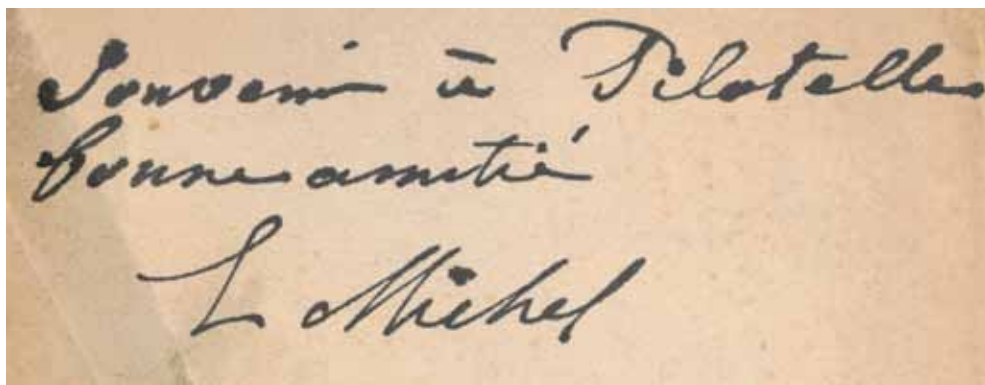 Souvenir à Pilotelle
bonne amitié
L Michel